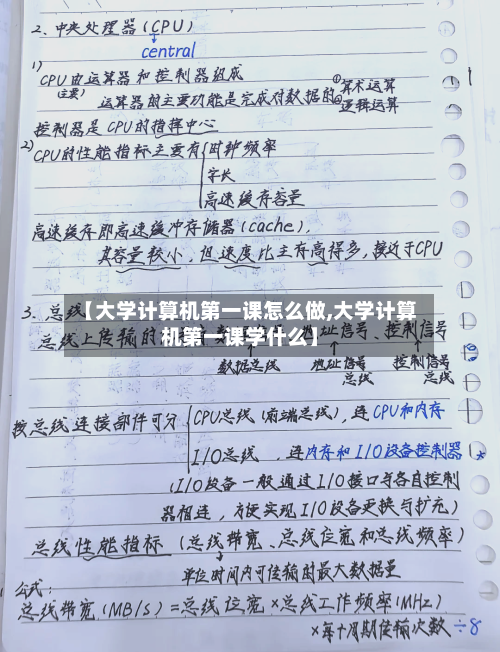 2、中央处理器(CPU)
central
1)
CPU由运算器和控制器组成
(主要)
运算器的主要功能是完成对数据的 ①算术运算
②逻辑运算
控制器是CPU的指挥中心
2)
CPU的性能指标主要有 时钟频率
字长
高速缓存容量
高速缓存即高速缓冲存储器(cache),
其容量较小,但速度比主存高得多,接近于CPU
3、总线
【大学计算机第一课怎么做,大学计算
机第一课学什么】
总线上传输的 地址信号、控制信号
数据总线 地址信号总线 控制信号总线
按总线连接部件可分 CPU总线(前端总线),连CPU和内存
I/O总线,连内存和I/O设备控制器
(I/O设备一般通过I/O接口与各自控制
器相连,方便实现I/O设备更换与扩充)
总线性能指标(总线带宽、总线位宽和总线频率)
单位时间内可传输的最大数据量
公式:
总线带宽(MB/s)=总线位宽×总线工作频率(MHz)
×每个周期传输次数÷8